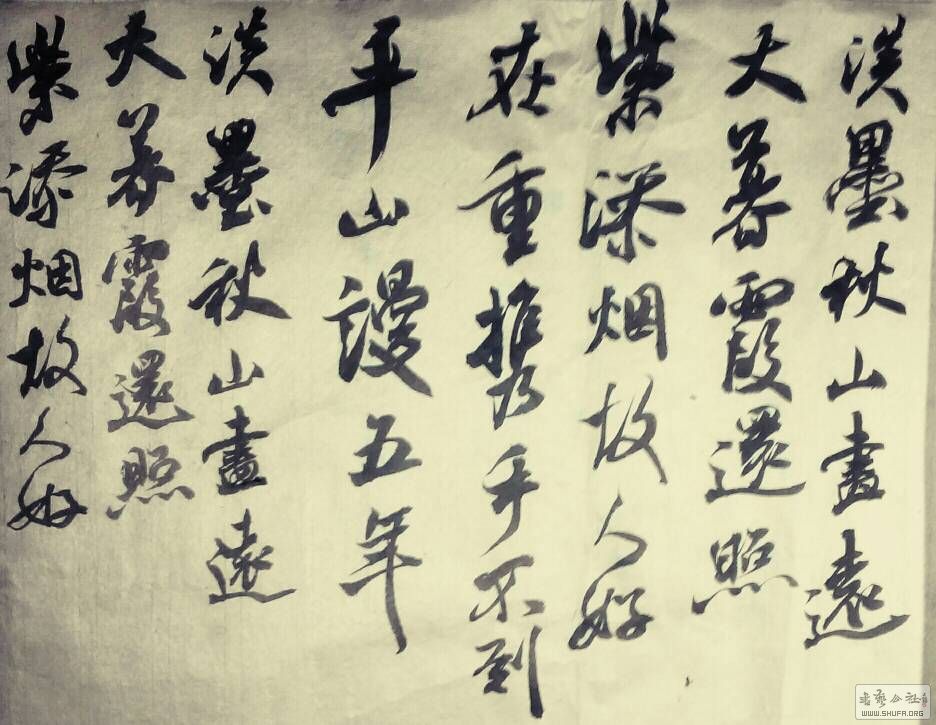 淡墨秋山盡遠
天暮霞還照
紫添烟故人好
在重攜手不到
平山謾五年
淡墨秋山盡遠
天暮霞還照
紫添烟故人好
書藝公社
WWW.SHUFA.ORG